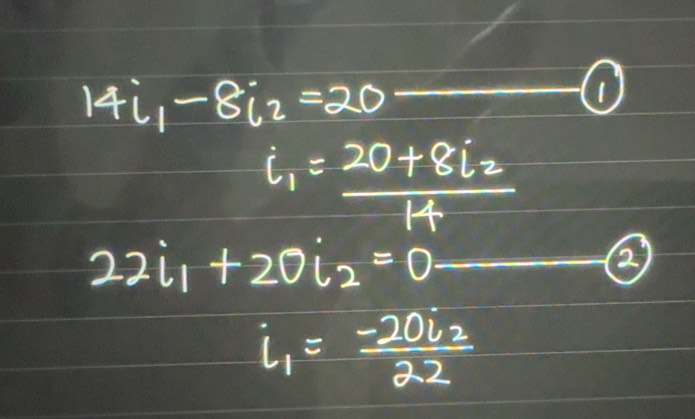 14i₁ - 8i₂ = 20 ——— ①
i₁ = (20 + 8i₂)/14
22i₁ + 20i₂ = 0 ——— ②
i₁ = -20i₂/22